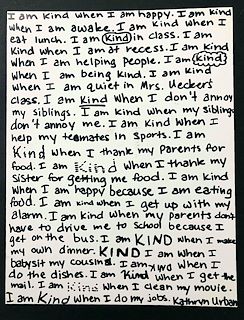 I am kind when I am happy. I am kind
when I am awake. I am kind when I
eat lunch. I am kind in class. I am
kind when I am at recess. I am kind
when I am helping people. I am kind
when I am being kind. I am kind
when I am quiet in Mrs. Ueckert's
class. I am kind when I don't annoy
my siblings. I am kind when my siblings
don't annoy me. I am kind when I
help my teamates in sports. I am
kind when I thank my parents for
food. I am kind when I thank my
sister for getting me food. I am kind
when I am happy because I am eating
food. I am kind when I get up with my
alarm. I am kind when my parents don't
have to drive me to school because I
get on the bus. I am KIND when I make
my own dinner. KIND I am when I
babysit my cousins. I am kind when I
do the dishes. I am kind when I get the
mail. I am kind when I clean my movie.
I am kind when I do my jobs. Kathryn Urban